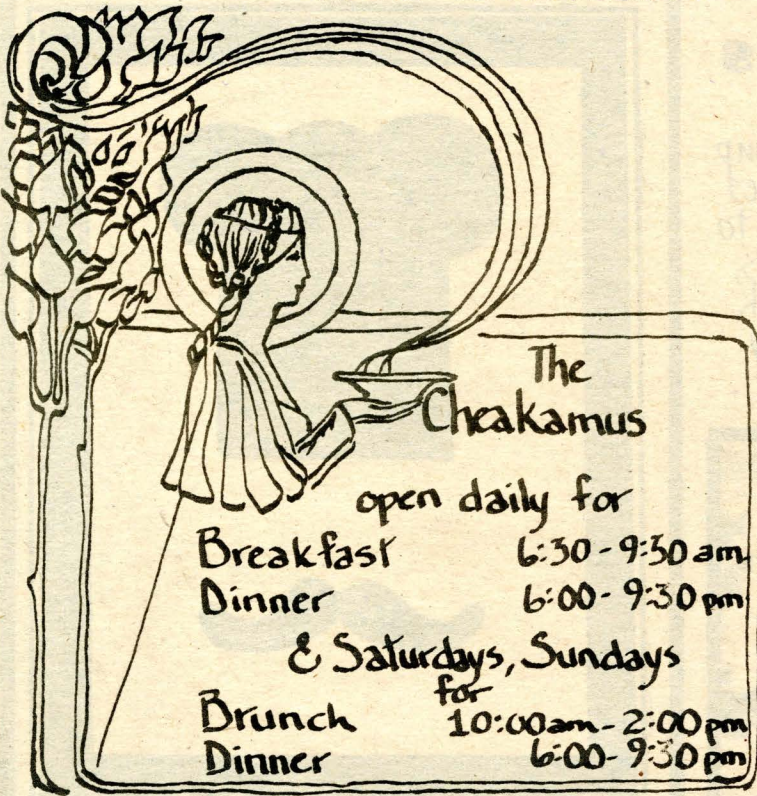 The
Cheakamus
open daily for
Breakfast 6:30-9:30 am
Dinner 6:00-9:30 pm
& Saturdays, Sundays
for
Brunch 10:00am-2:00pm
Dinner 6:00-9:30 pm